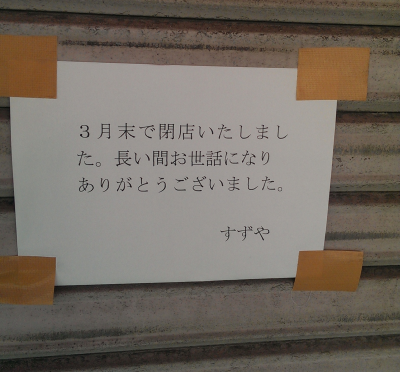 ３月末で閉店いたしまし
た。長い間お世話になり
ありがとうございました。
すずや